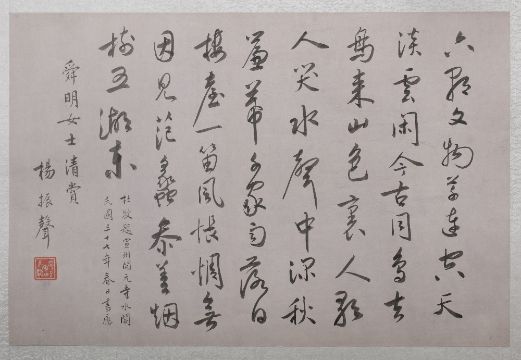 六朝文物草連空天
淡雲閑今古同鳥去
鳥來山色裏人歌
人哭水聲中深秋
簾幕千家雨落日
樓臺一笛風悵惆無
因見范蠡參差烟
樹五湖東
杜牧題宣州開元寺水閣
民國三十七年春日書應
舜明女士清賞
楊振聲